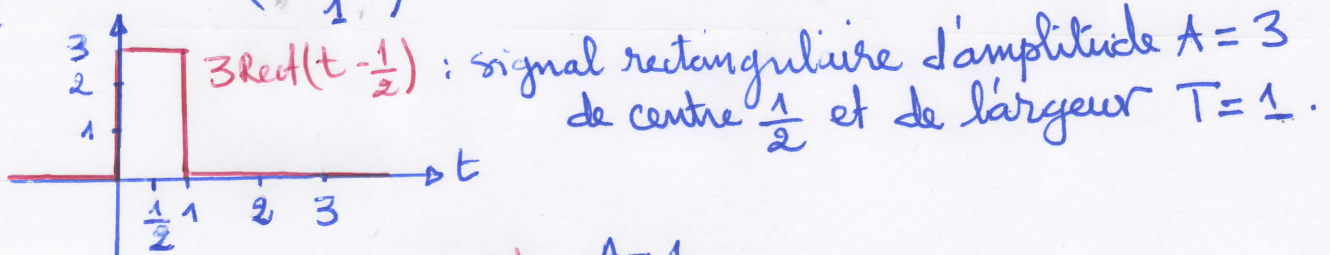 3
3Rect(t - 1/2) : signal rectangulaire d'amplitude A = 3
2
de centre 1/2 et de largeur T = 1.
1
t
1/2 1 2 3